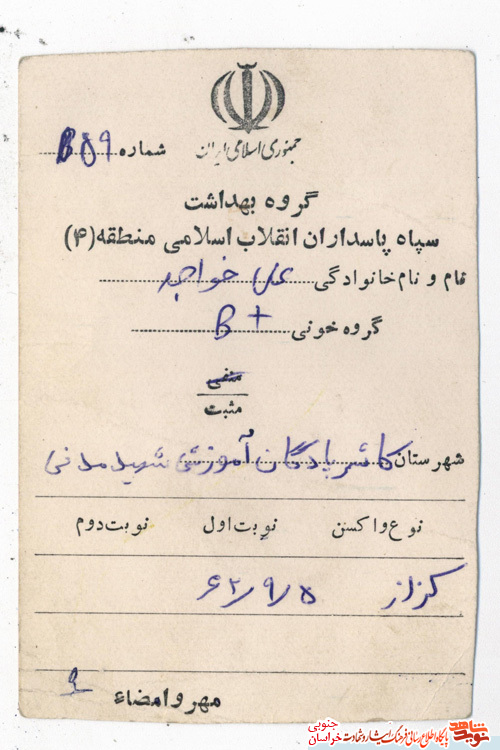 جمهوری اسلامی ایران
شماره B 59
گروه بهداشت
سپاه پاسداران انقلاب اسلامی منطقه (۴)
نام و نام خانوادگی علی خواجه
گروه خونی B +
منفی
مثبت
شهرستان پادگان آموزشی شهید مدنی
نوع واکسن نوبت اول نوبت دوم
کزاز ۶۲/۹/۵
مهر و امضاء
نوید شاهد
پایگاه اطلاع رسانی فرهنگ ایثار و شهادت
خراسان جنوبی